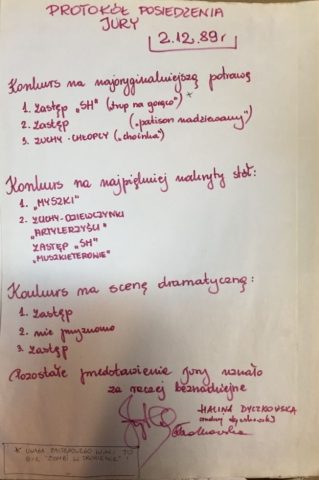 PROTOKÓŁ POSIEDZENIA
JURY
2.12.89r
Konkurs na najoryginalniejszą potrawę
1. Zastęp „SH" (trup na gorąco") *
2. Zastęp („patison nadziewany")
3. ZUCHY-CHŁOPCY („choinka")
Konkurs na najpiękniej nakryty stół:
1. „MYSZKI"
2. ZUCHY-DZIEWCZYNKI
„ARTYLERZYŚCI"
ZASTĘP „SH"
„MUSZKIETEROWIE"
Konkurs na scenę dramatyczną:
1. Zastęp
2. nie przyznano
3. Zastęp
Pozostałe przedstawienia jury uznało
za raczej beznadziejne
HALINA DYCZKOWSKA
* UWAGA ZASTĘPOWEGO WINNO TO
BYĆ "ZOMBI W"